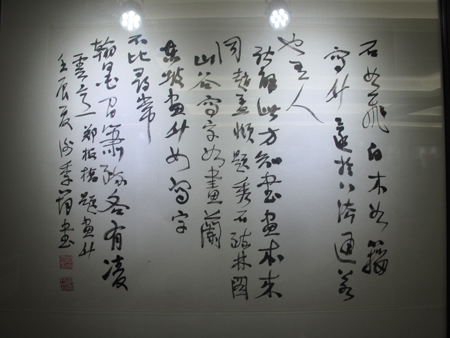 石如飛白木如籀
寫竹還於八法通若
也有人
能解此方知書畫本來
同趙孟頫題秀石疏林圖
山谷寫字如畫蘭
東坡畫竹如寫字
不比尋常
翰墨間蕭疏各有凌
雲意鄭板橋題畫竹
壬辰夏季書